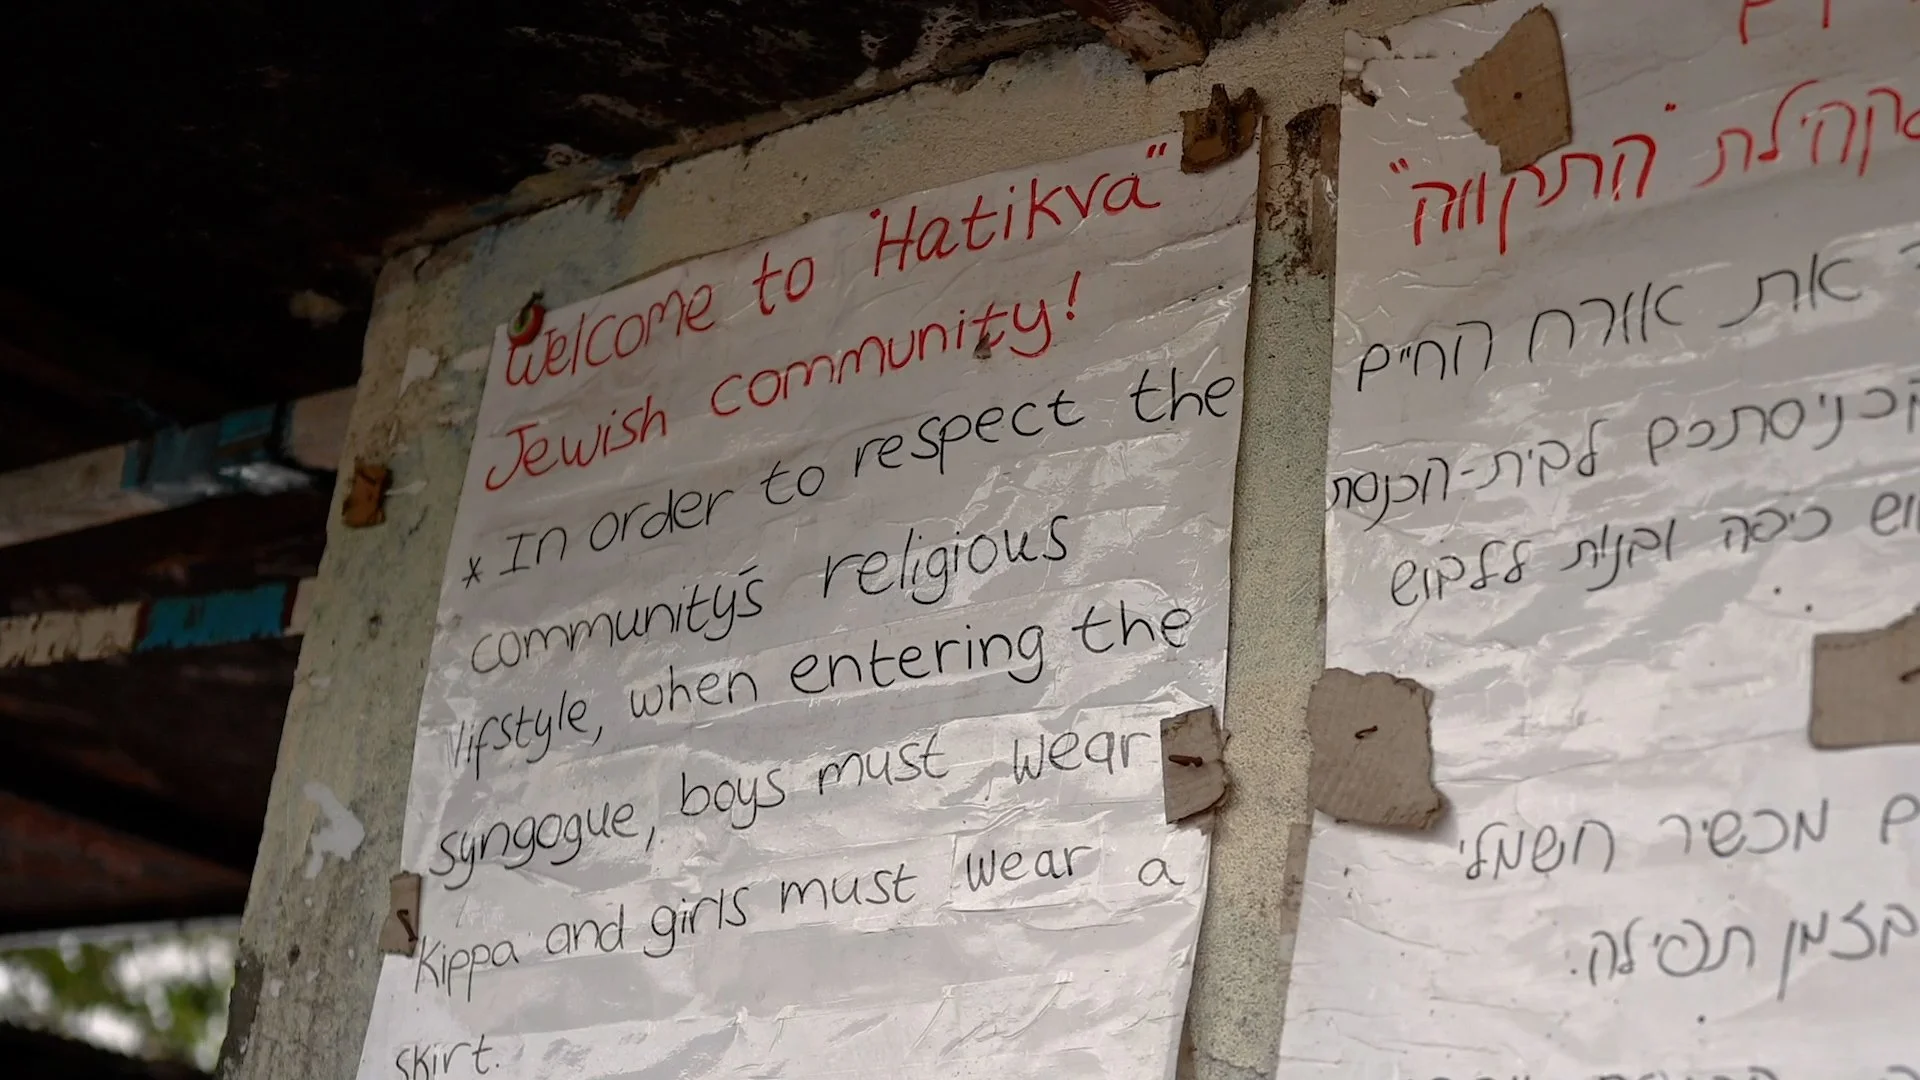 Welcome to "Hatikva"
Jewish community!
* In order to respect the
community's religious
lifstyle, when entering the
syngogue, boys must wear
Kippa and girls must wear a
skirt.
קהילת "התקווה"
את אורח החיים
בכניסתכם לבית-הכנסת
כיפה ובנות ללבוש
מכשיר חשמלי
בזמן תפילה.